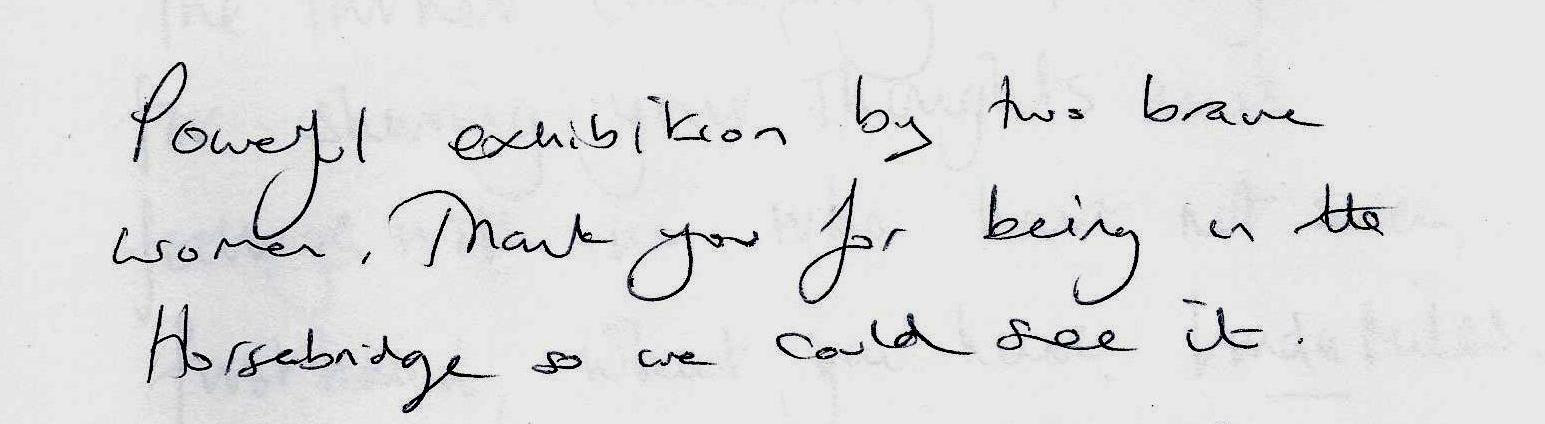 Powerful exhibition by two brave
women. Thank you for being in the
Horsebridge so we could see it.